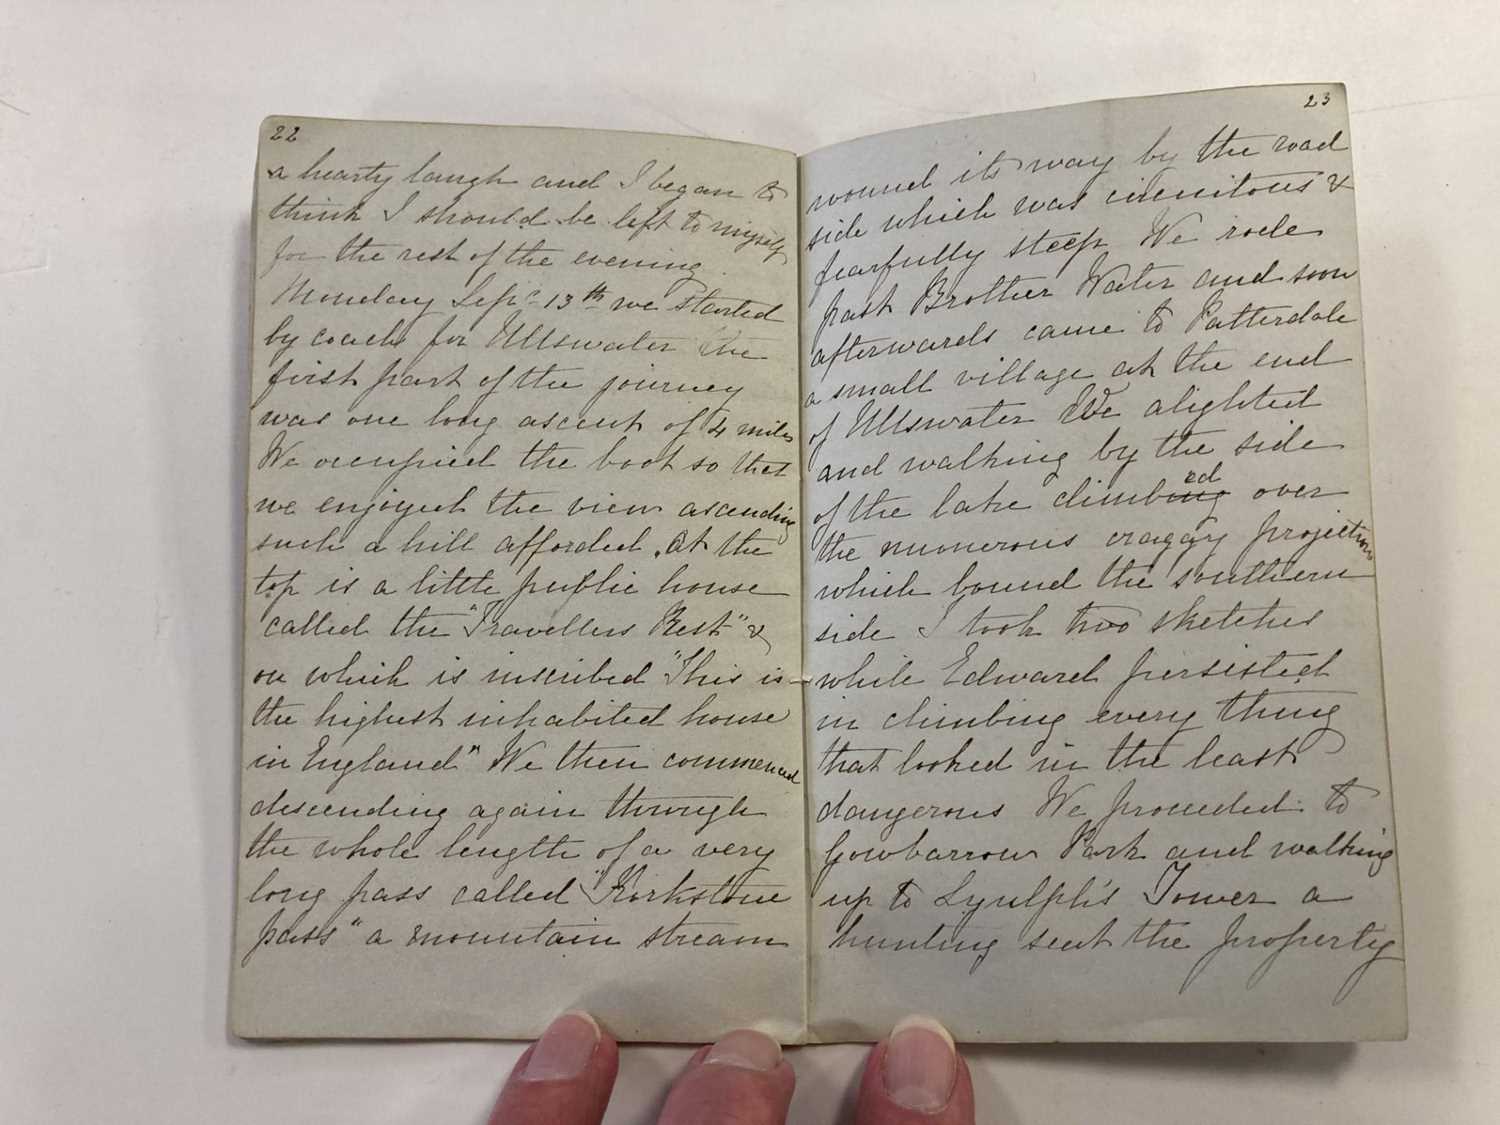 22
a hearty laugh and I began to
think I should be left to myself
for the rest of the evening.
Monday Sepr 13th we started
by coach for Ullswater the
first part of the journey
was one long ascent of 4 miles
We occupied the boot so that
we enjoyed the view ascending
such a hill afforded. At the
top is a little public house
called the "Travellers Rest" &
on which is inscribed "This is
the highest inhabited house
in England" We then commenced
descending again through
the whole length of a very
long pass called "Kirkstone
pass" a mountain stream
23
wound its way by the road
side which was circuitous &
fearfully steep We rode
past Brother Water and soon
afterwards came to Patterdale
a small village at the end
of Ullswater We alighted
and walking by the side
of the lake climbing ed over
the numerous craggy projections
which bound the southern
side I took two sketches
while Edward persisted
in climbing every thing
that looked in the least
dangerous We proceeded to
Gowbarrow Park and walking
up to Lyulph's Tower a
hunting seat the property